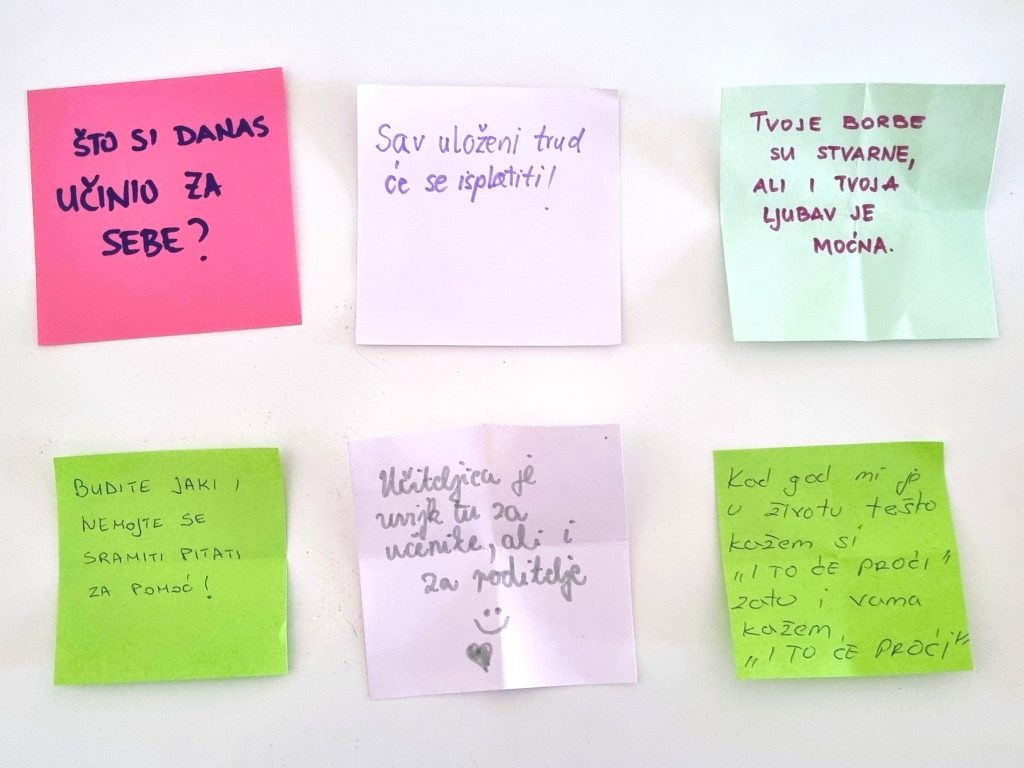 ŠTO SI DANAS
UČINIO ZA
SEBE?
Sav uloženi trud
će se isplatiti!
TVOJE BORBE
SU STVARNE,
ALI I TVOJA
LJUBAV JE
MOĆNA.
BUDITE JAKI I
NEMOJTE SE
SRAMITI PITATI
ZA POMOĆ!
Učiteljica je
uvijk tu za
učenike, ali i
za roditelje
Kad god mi je
u životu teško
kažem si
"I TO ĆE PROĆI"
zato i vama
kažem,
"I TO ĆE PROĆI"